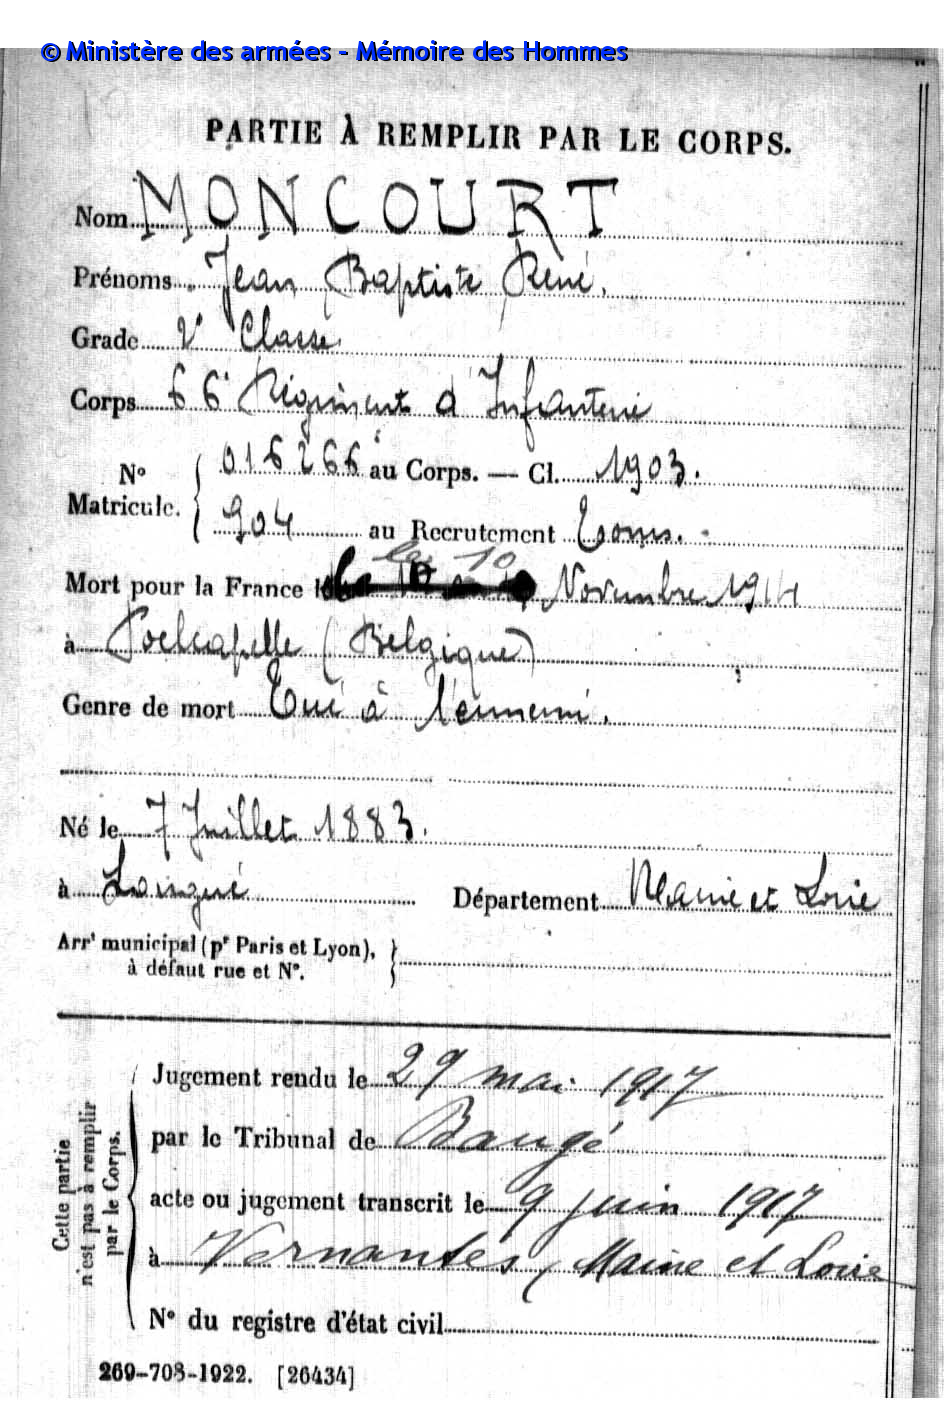 © Ministère des armées - Mémoire des Hommes
PARTIE À REMPLIR PAR LE CORPS.
Nom MONCOURT
Prénoms Jean Baptiste René.
Grade 2e Classe
Corps 66e Régiment d'Infanterie
No Matricule. { 016266 au Corps. — Cl. 1903.
904 au Recrutement Tours.
le 10
Mort pour la France le Novembre 1914
à Poelcapelle (Belgique)
Genre de mort Tué à l'ennemi.
Né le 7 Juillet 1883.
à Longué Département Maine et Loire
Arrt municipal (pr Paris et Lyon),
à défaut rue et N°.
Cette partie n'est pas à remplir par le Corps.
Jugement rendu le 29 mai 1917
par le Tribunal de Baugé
acte ou jugement transcrit le 9 juin 1917
à Vernantes, Maine et Loire
N° du registre d'état civil
269-708-1922. [26434]